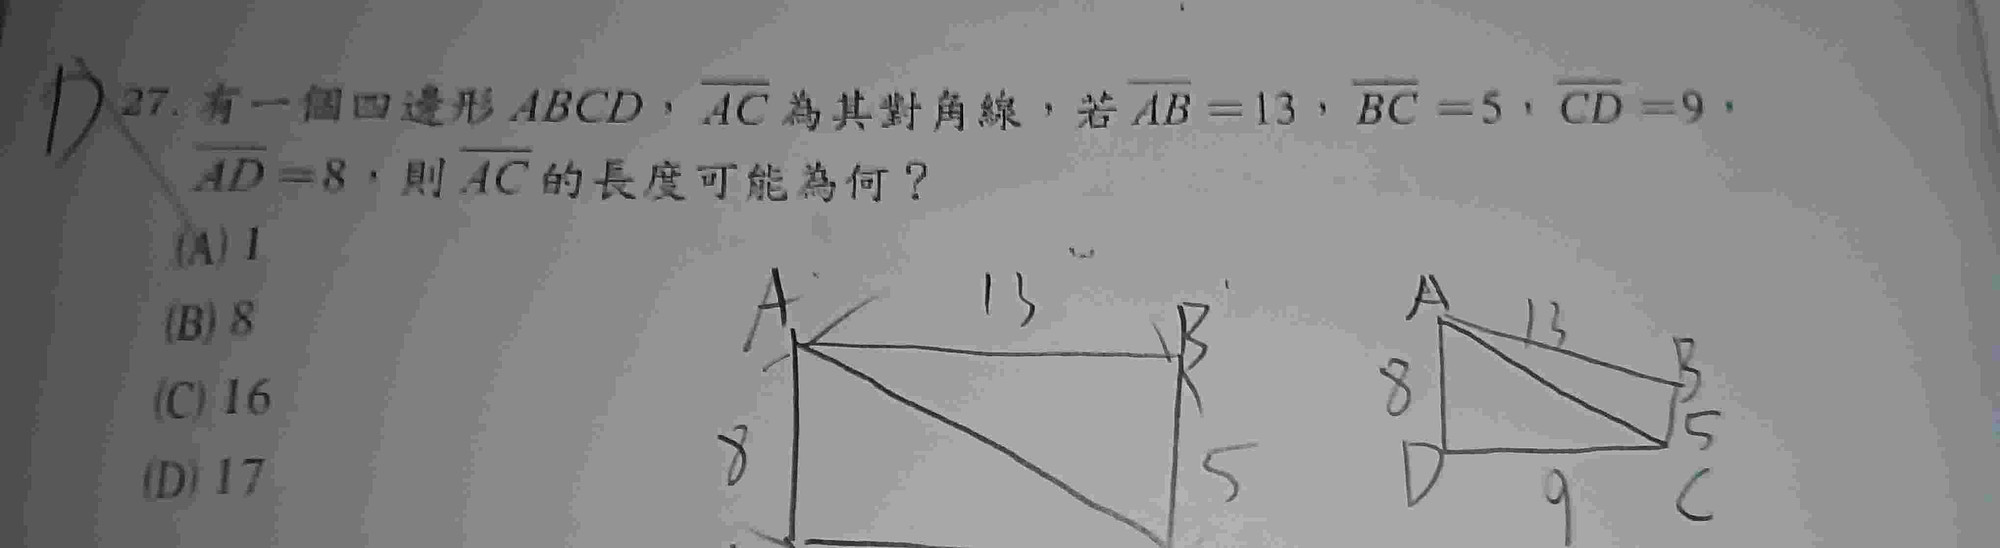 D 27. 有一個四邊形ABCD，AC為其對角線，若AB=13，BC=5，CD=9，
AD=8，則AC的長度可能為何？
(A) 1
(B) 8
(C) 16
(D) 17
A 13 B
8 5
A 13 B
8 5
D 9 C